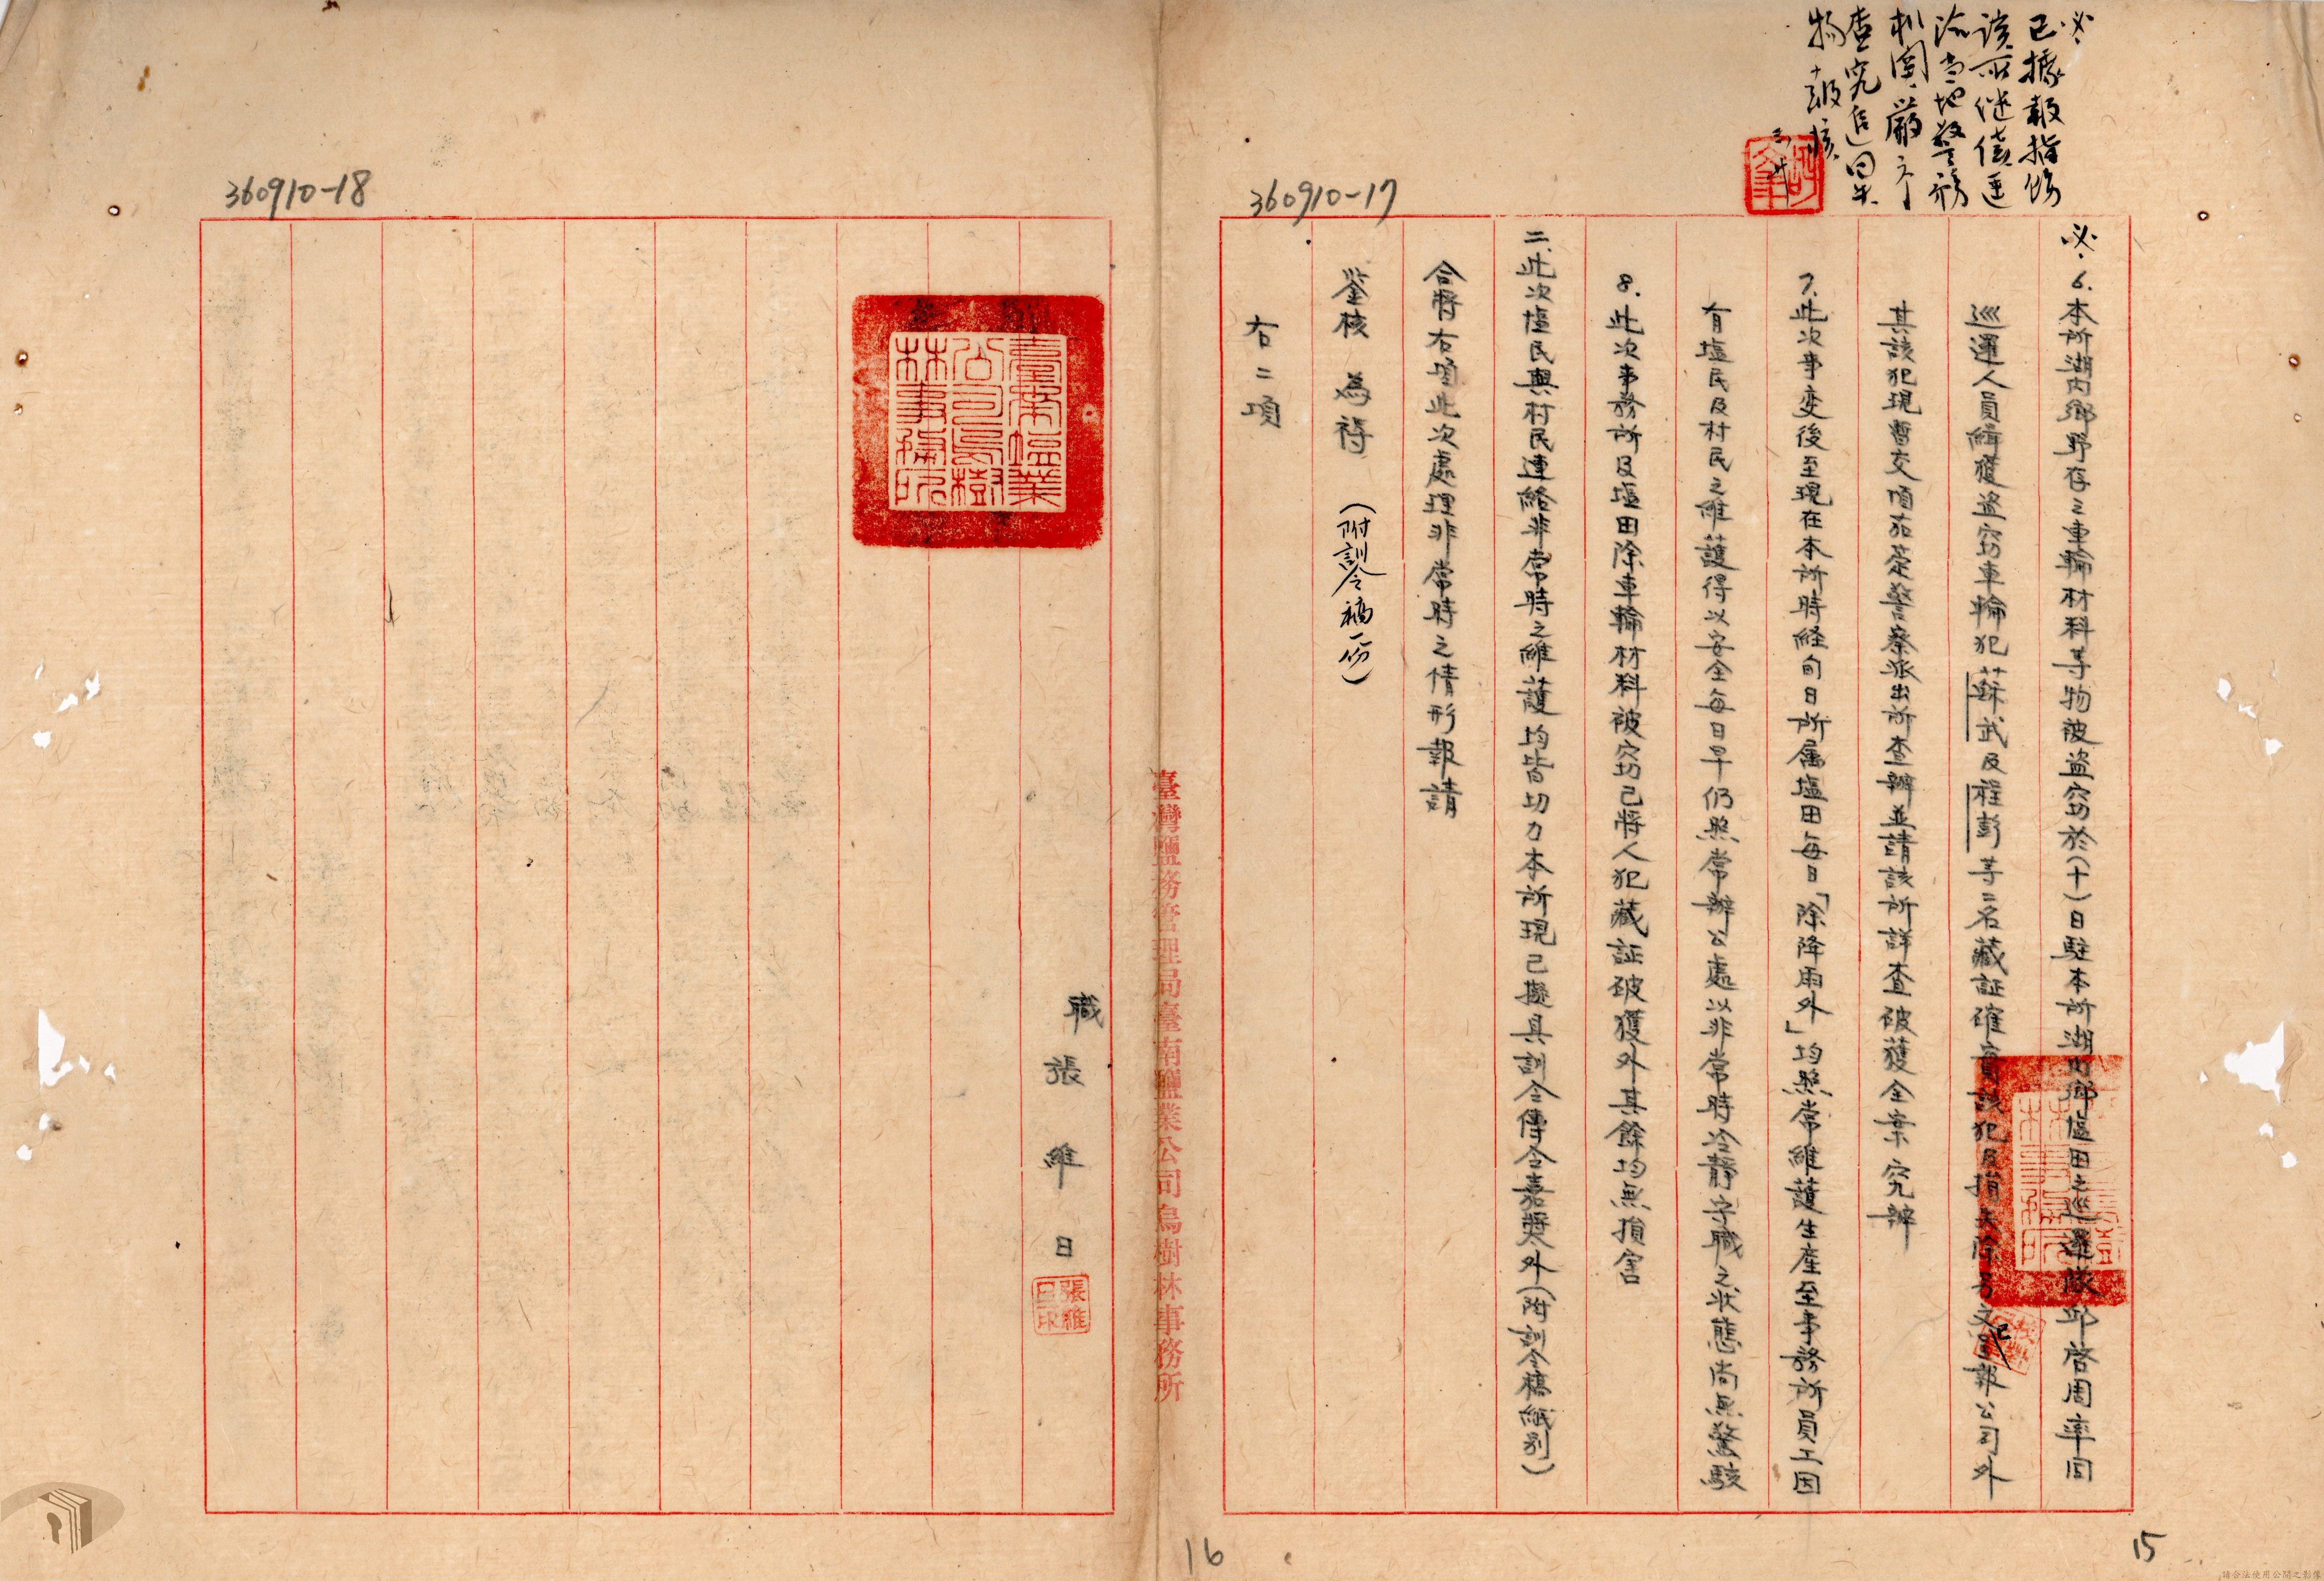 已據報指飭
該所繼續逕
洽當地警務
机關嚴予
查究追回失
物
報核
360910-17
6.本所湖内鄉野存之車輪材料等物被盗窃於(十)日駐本所湖内鄉塩田之巡邏隊邱啓周率同
巡運人員緝獲盗窃車輪犯蘇武及程彭等二名藏証確實該犯及損失除另文呈報公司外
其該犯現曹交頂茄萣警察派出所查辦並請該所詳查破獲全案究辦
7.此次事変後至現在本所時経旬日所属塩田每日「除降雨外」均照常維護生産至事務所員工因
有塩民及村民之維護得以安全每日早仍照常辦公處以非常時冷靜守職之状態尚無驚駭
8.此次事務所及塩田除車輪材料被窃已將人犯藏証破獲外其餘均無損害
二、此次塩民與村民連絡非常時之維護均皆切力本所現已擬具訓令傳令嘉奬外(附訓令稿紙别)
合將右項此次處理非常時之情形報請
鉴核 為禱 (附訓令稿一份)
右二項
臺灣鹽務管理局臺南鹽業公司烏樹林事務所
360910-18
臺南鹽業
公司烏樹
林事務所
職 張維日
張維
日印
15
16
請合法使用公開之影像